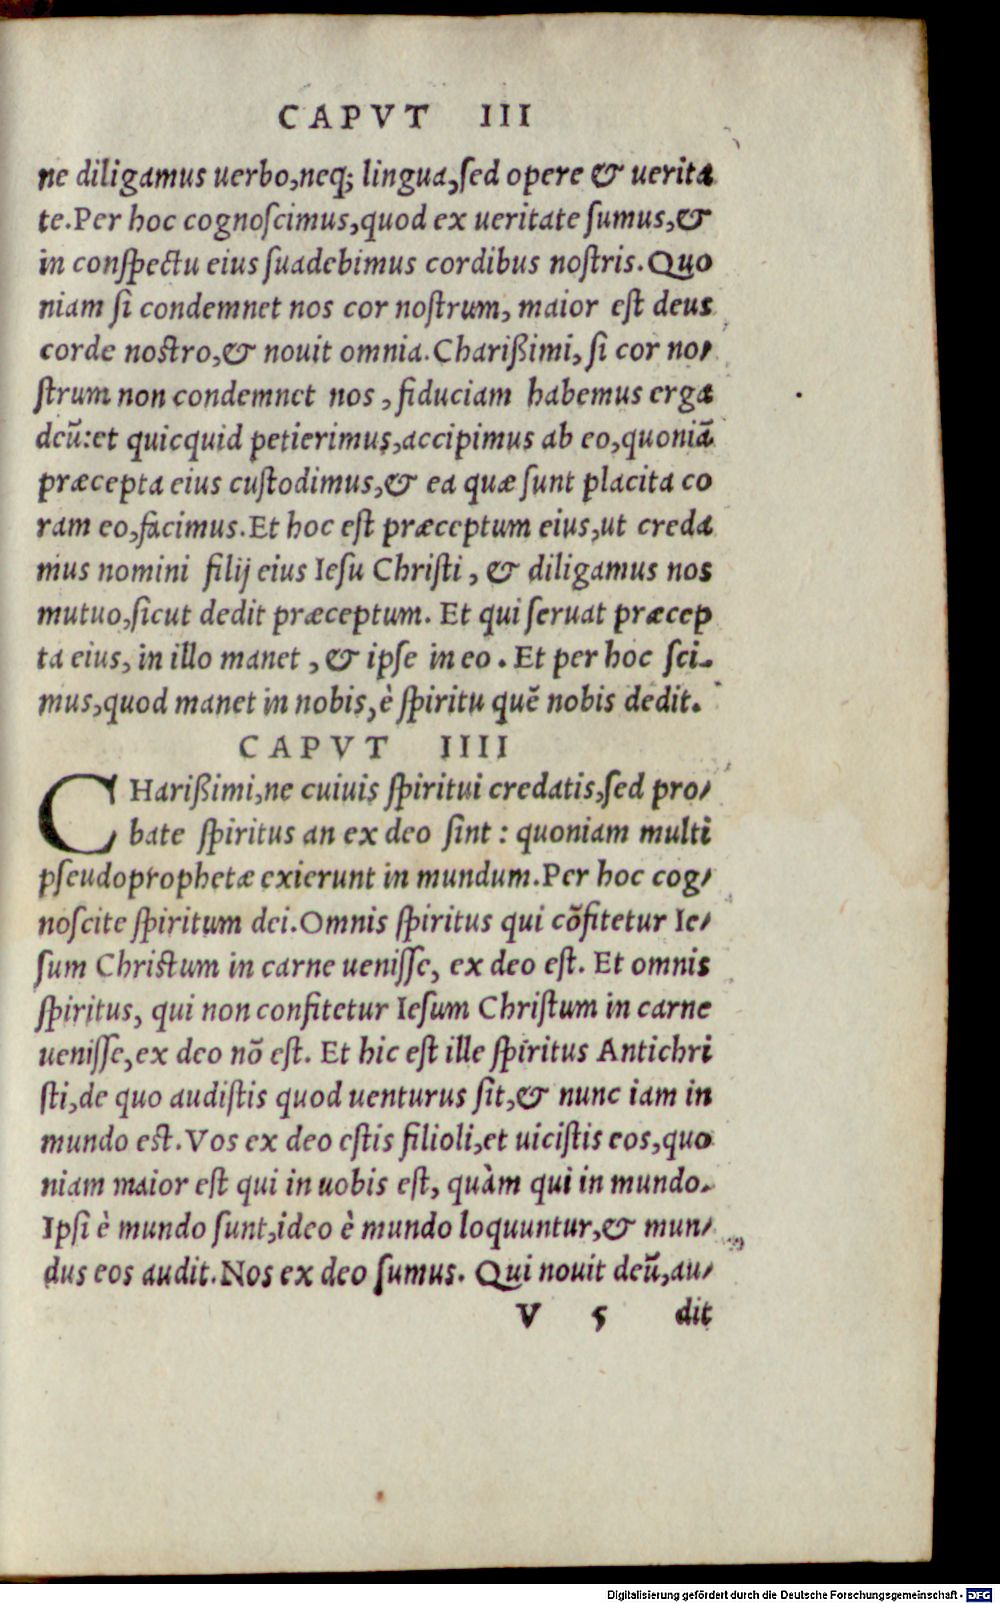 CAPVT III
ne diligamus uerbo,neq; lingua,ſed opere & uerita
te.Per hoc cognoſcimus,quod ex ueritate ſumus,&
in conſpectu eius ſuadebimus cordibus noſtris.Quo
niam ſi condemnet nos cor noſtrum, maior eſt deus
corde noſtro,& nouit omnia.Charißimi, ſi cor no/
ſtrum non condemnet nos , fiduciam habemus erga
deũ:et quicquid petierimus,accipimus ab eo,quoniã
præcepta eius cuſtodimus,& ea quæ ſunt placita co
ram eo,facimus.Et hoc eſt præceptum eius,ut creda
mus nomini filij eius Ieſu Chriſti , & diligamus nos
mutuo,ſicut dedit præceptum. Et qui ſeruat præcep
ta eius, in illo manet , & ipſe in eo . Et per hoc ſci-
mus,quod manet in nobis,è ſpiritu quẽ nobis dedit.
CAPVT IIII
CHarißimi,ne cuiuis ſpiritui credatis,ſed pro/
bate ſpiritus an ex deo ſint : quoniam multi
pſeudoprophetæ exierunt in mundum.Per hoc cog/
noſcite ſpiritum dei.Omnis ſpiritus qui cõfitetur Ie/
ſum Chriſtum in carne ueniſſe, ex deo eſt. Et omnis
ſpiritus, qui non confitetur Ieſum Chriſtum in carne
ueniſſe,ex deo nõ eſt. Et hic eſt ille ſpiritus Antichri
ſti,de quo audiſtis quod uenturus ſit,& nunc iam in
mundo eſt.Vos ex deo eſtis filioli,et uiciſtis eos,quo
niam maior eſt qui in uobis eſt, quàm qui in mundo.
Ipſi è mundo ſunt,ideo è mundo loquuntur,& mun/
dus eos audit.Nos ex deo ſumus. Qui nouit deũ,au/
V 5 dit
Digitalisierung gefördert durch die Deutsche Forschungsgemeinschaft - DFG